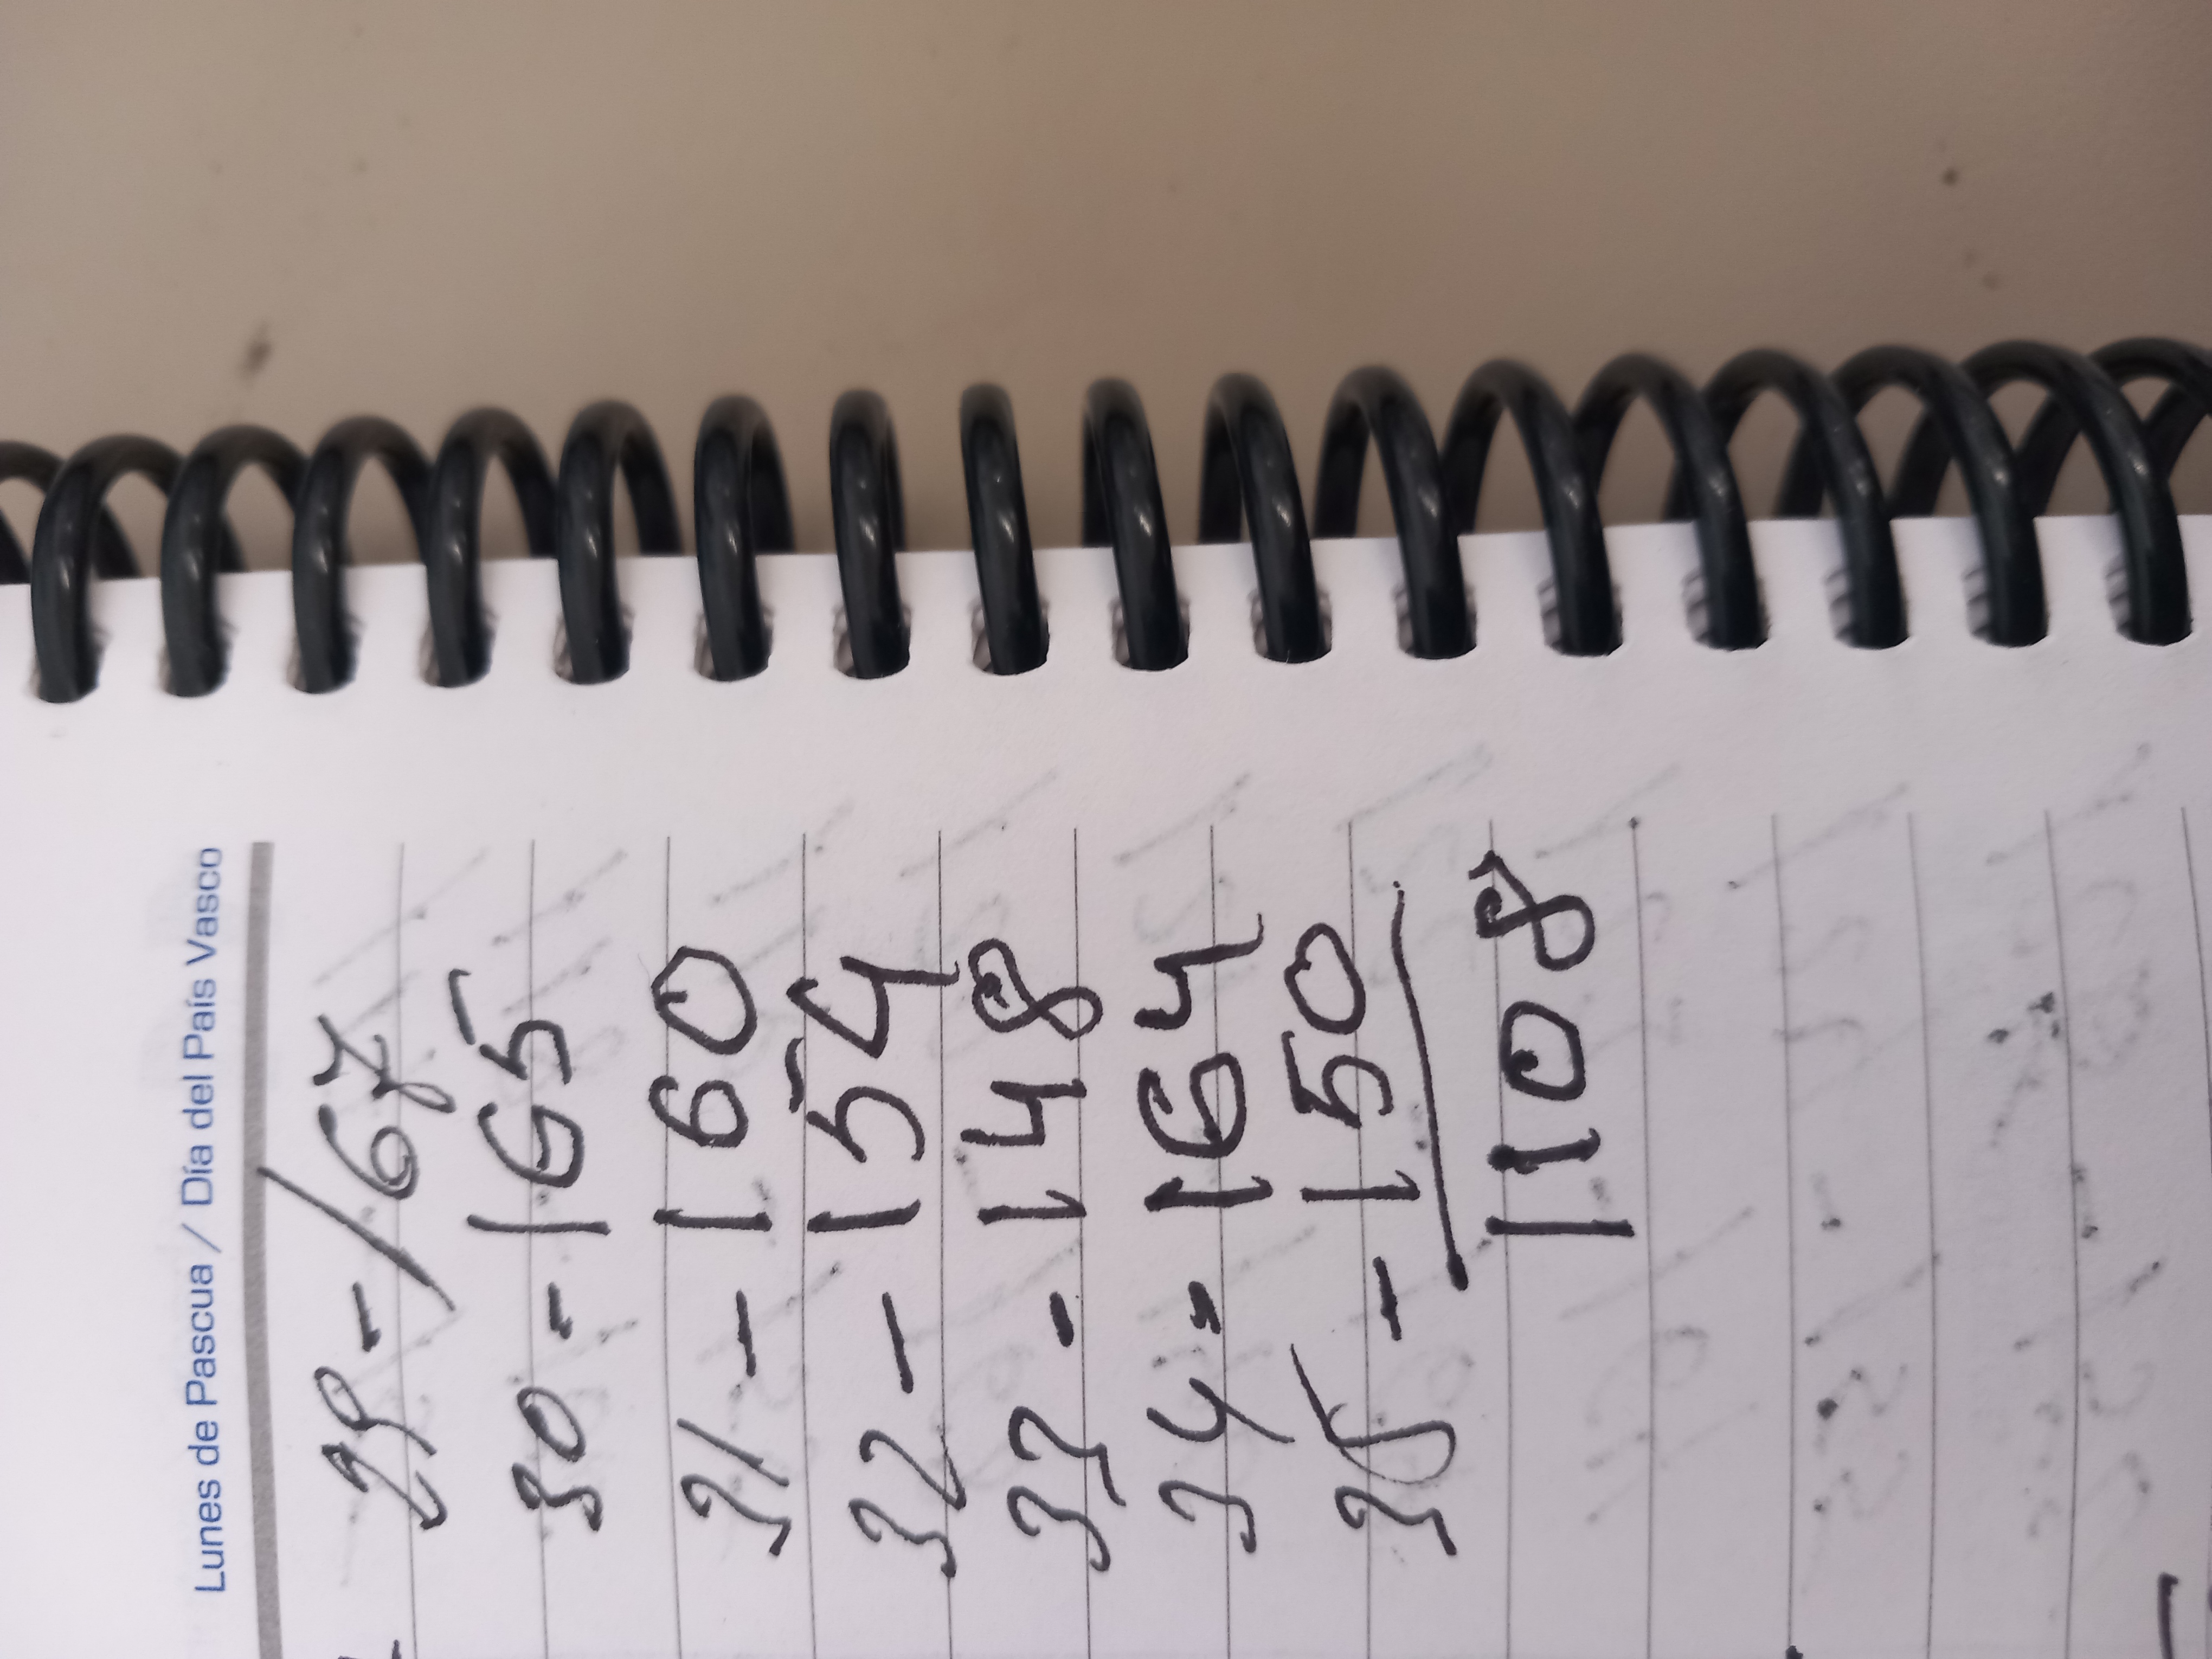 Lunes de Pascua / Día del País Vasco
29 - 167
30 - 165
31 - 160
32 - 154
33 - 148
34 - 164
35 - 150
1108